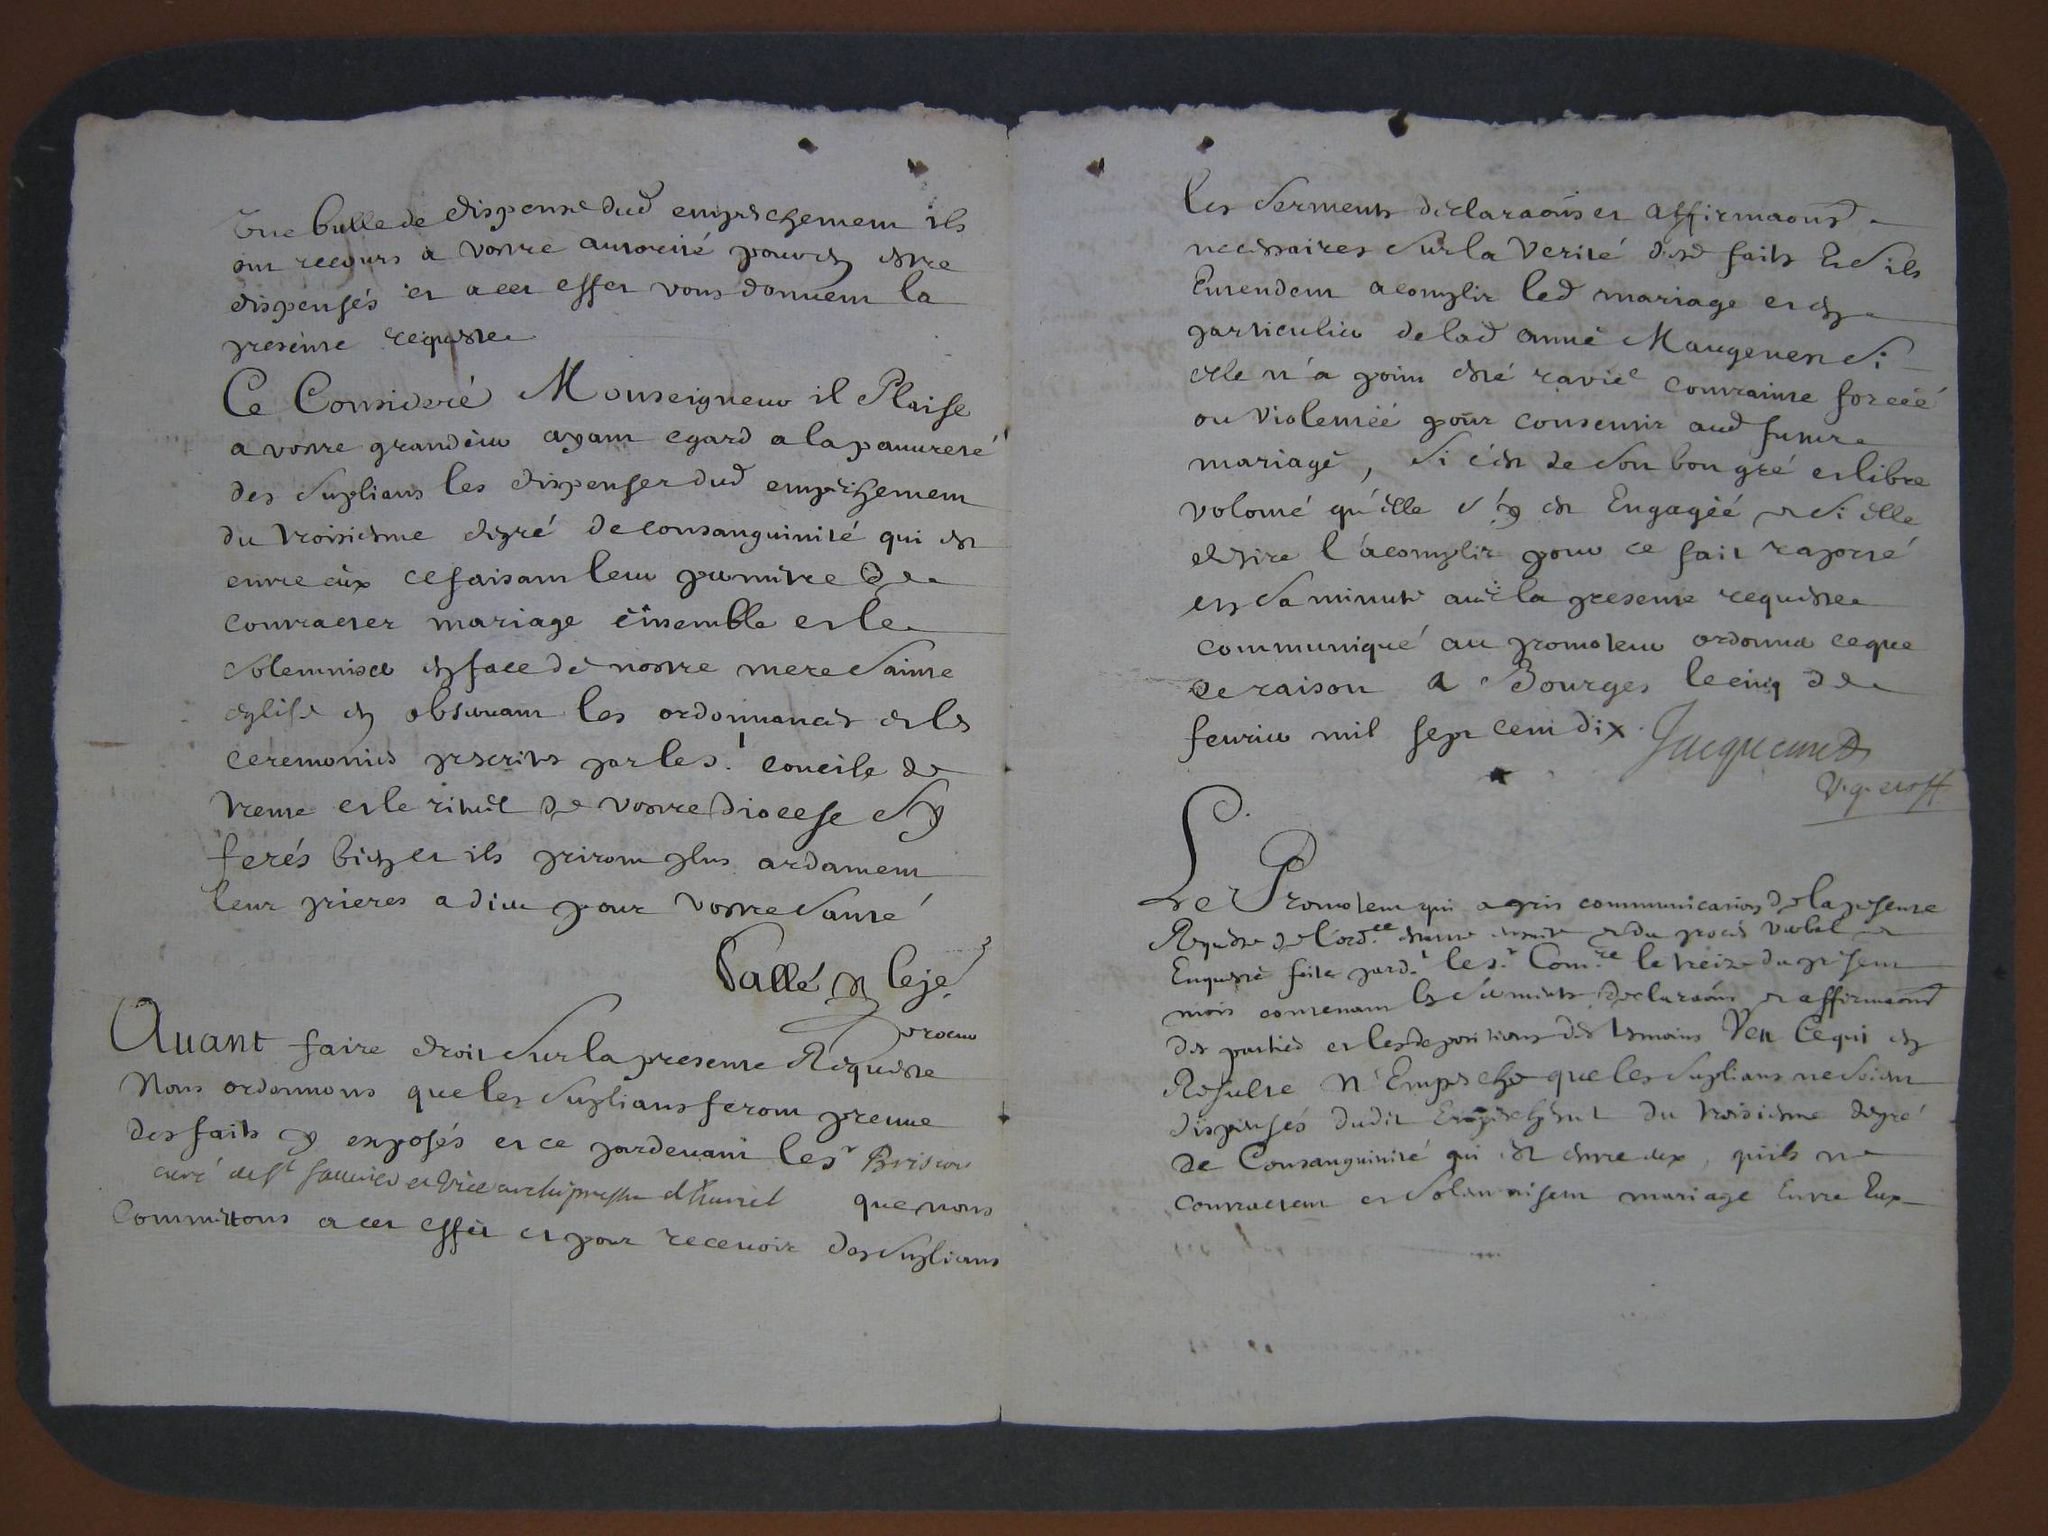 Une bulle de dispense dud empeschement ils
ont recours a vostre autorité pour en estre
dispensés et a cet effet vous donnent la
presente requeste
Ce Consideré Monseigneur il Plaise
a vostre grandeur ayant egard a la pauureté
des suplians les dispenser dud empeschement
du troisiesme degré de consanguinité qui est
entre eux ce faisant leur permettre de
contracter mariage ensemble et le
solemniser en face de nostre mere sainte
eglise en obseruant les ordonnances et les
ceremonies prescrites par le st concile de
trente et le rituel de vostre diocese Sy
ferés bien et ils priront plus ardament
leur prieres a dieu pour vostre santé
Vallé leje
procur
Auant faire droit sur la presente Requeste
Nous ordonnons que les supliants feront preuue
des faits y exposés et ce pardeuant le sr Brisson
curé de st sauuier et vice archiprestre d'huriel que nous
Commettons a cet effet et pour receuoir des suplians
les serments declaraons et affirmaons
necessaires sur la verité desd faits et s'ils
Entendent acomplir led mariage et en
particulier de lad anne Maugenest si
elle n'a point esté raviee contrainte forcéé
ou violentéé pour consentir aud futur
mariage, si c'est de son bon gré et libre
volonté qu'elle s'y est Engagéé et si elle
desire l'acomplir pour ce fait raporté
en sa minute auec la presente requeste
communiqué au promoteur ordonner ce que
de raison a Bourges le cinq de
feurier mil sept cent dix. Jacquemet
v. g. et off
Le Promoteur qui a pris communication de la presente
Requeste de l'ordce estante ensuite et du procés verbal et
Enqueste faite pard.t le s.r Com.re le treize du present
mois contenant les serments declaraons et affirmaons
des parties et les depositions des temoins Veu Ce qui en
Resulte N'Empesche que les suplians ne soient
dispensés dudit Empeschemt du troisiesme degré
de Consanguinité qui est entre eux, quils ne
contractent et solemnisent mariage Entre Eux